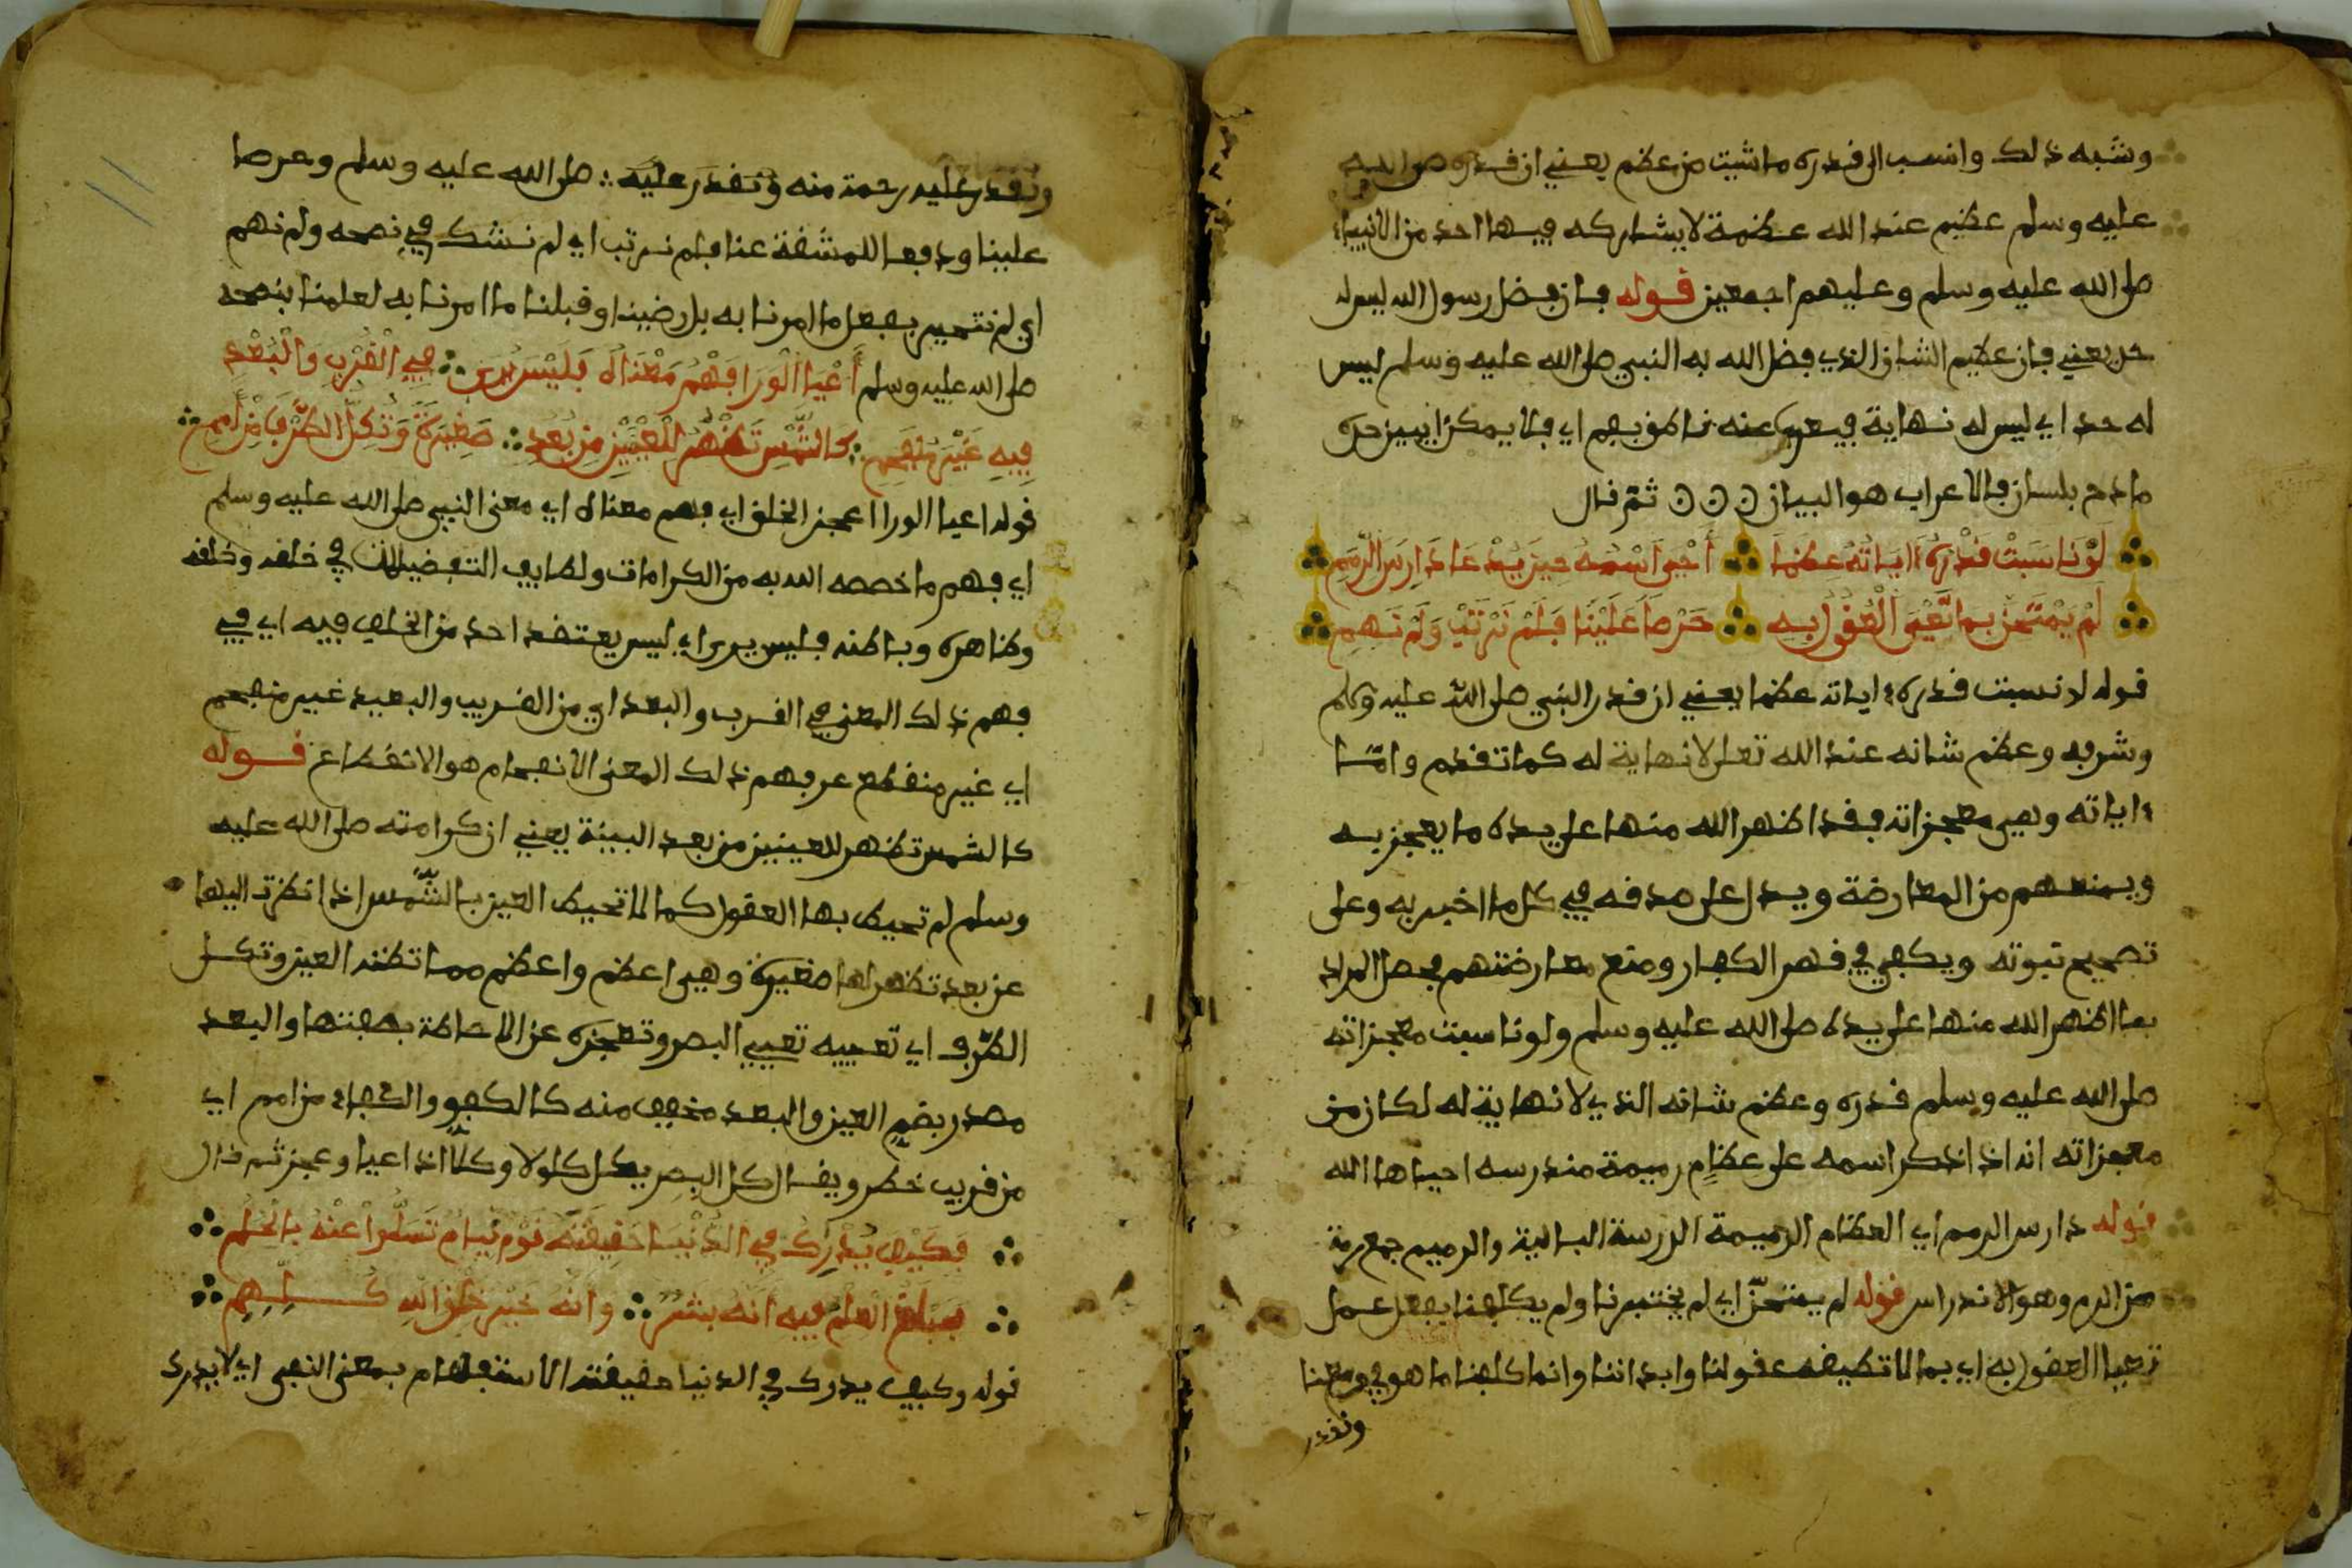 وشبه ذلك وانسب الى قدره ما شيت من عظم يعني ان قدره صلى الله
عليه وسلم عظيم عند الله عظمة لا يشاركه فيها احد من الانبياء
صلى الله عليه وسلم وعليهم اجمعين قوله فان فضل رسول الله ليس له
حد يعني فان عظيم الشان الذي فضل الله به النبي صلى الله عليه وسلم ليس
له حد اي ليس له نهاية فيعرب عنه ناطق بفم اي فلا يمكن ان يبين حده
مادح بلسان فالاعراب هو البيان ثم قال
لَوْ نَاسَبَتْ قَدْرَهُ ءايَاتُهُ عِظَمَا أَحْيَى اسْمُهُ حِينَ يُدْعَى دَارِسَ الرِّمَمِ
لَمْ يَمْتَحِنَّا بِمَا تَعْيَى الْعُقُولُ بِهِ حِرْصًا عَلَيْنَا فَلَمْ نَرْتَبْ وَلَمْ نَهِمِ
قوله لو ناسبت قدره ءاياته عظما يعني ان قدر النبي صلى الله عليه وسلم
وشرفه وعظم شانه عند الله تعلى لا نهاية له كما تقدم واما
ءاياته وهي معجزاته فقد اظهر الله منها على يده ما يعجز به
ويمنعهم من المعارضة ويدل على صدقه في كل ما اخبر به وعلى
تصحيح نبوته ويكفي في قهر الكفار ومنع معارضتهم فحصل المراد
بما اظهر الله منها على يده صلى الله عليه وسلم ولو ناسبت معجزاته
صلى الله عليه وسلم قدره وعظم شانه الذي لا نهاية له لكان من
معجزاته انه اذا ذكر اسمه على عظام رميمة مندرسه احياها الله
قوله دارس الرمم اي العظام الرميمة الدرسة البالية والرميم جمع رمة
من الرم وهو الاندراس قوله لم يمتحنا اي لم يختبرنا ولم يكلفنا بفعل عمل
تعيا العقول به اي بما لا تطيقه عقولنا وابداننا وانما كلفنا ما هو في وسعنا
ونقدر
ونقدر عليه رحمة منه ونقدر عليه صلى الله عليه وسلم وحرصا
علينا ودفعا للمشقة عنا فلم نرتب اي لم نشك في نصحه ولم نهم
اي لم نتحير بفعل ما امرنا به بل رضينا وقبلنا ما امرنا به لعلمنا بنصحه
صلى الله عليه وسلم أَعْيَا الْوَرَا فَهْمُ مَعْنَاهُ فَلَيْسَ يُرَى فِي الْقُرْبِ وَالْبُعْدِ
فِيهِ غَيْرُ مُنْفَحِمِ كَالشَّمْسِ تَظْهَرُ لِلْعَيْنَيْنِ مِن بُعُدٍ صَغِيرَةً وَتُكِلُّ الطَّرْفَ مِنْ أَمَمِ
قوله اعيا الورا اعجز الخلق اي فهم معناه اي معنى النبي صلى الله عليه وسلم
اي فهم ما خصصه الله به من الكرامات ولطايف التفضيلات في خلقه وخلقه
وظاهره وباطنه فليس يرى اي ليس يعتقد احد من الخلق فيه اي في
فهم ذلك المعنى في القرب والبعد اي من القريب والبعيد غير منفحم
اي غير منقطع عن فهم ذلك المعنى الانفحام هو الانقطاع قوله
كالشمس تظهر للعينين من بعد البيتة يعني ان كرامته صلى الله عليه
وسلم لم تحيط بها العقول كما لا تحيط العين بالشمس اذا نظرت اليها
عن بعد تظهر لها صغيرة وهي اعظم واعظم مما تظنه العين وتكل
الطرف اي تعييه تعيي البصر وتعجزه عن الاحاطة بصفتها والبعد
مصدر بضم العين والبعد مخفف منه كالكفو والكفاء من امم اي
من قريب خطر ويقال كل البصر يكل كلولا وكلا اذا اعيا وعجز ثم قال
فَكَيْفَ يُدْرِكُ فِي الدُّنْيَا حَقِيقَتَهُ قَوْمٌ نِيَامٌ تَسَلَّوْا عَنْهُ بِالْحُلُمِ
فَمَبْلَغُ الْعِلْمِ فِيهِ أَنَّهُ بَشَرٌ وَأَنَّهُ خَيْرُ خَلْقِ اللهِ كُلِّهِمِ
قوله وكيف يدرك في الدنيا حقيقته الاستفهام بمعنى النفي اي لا يدرك